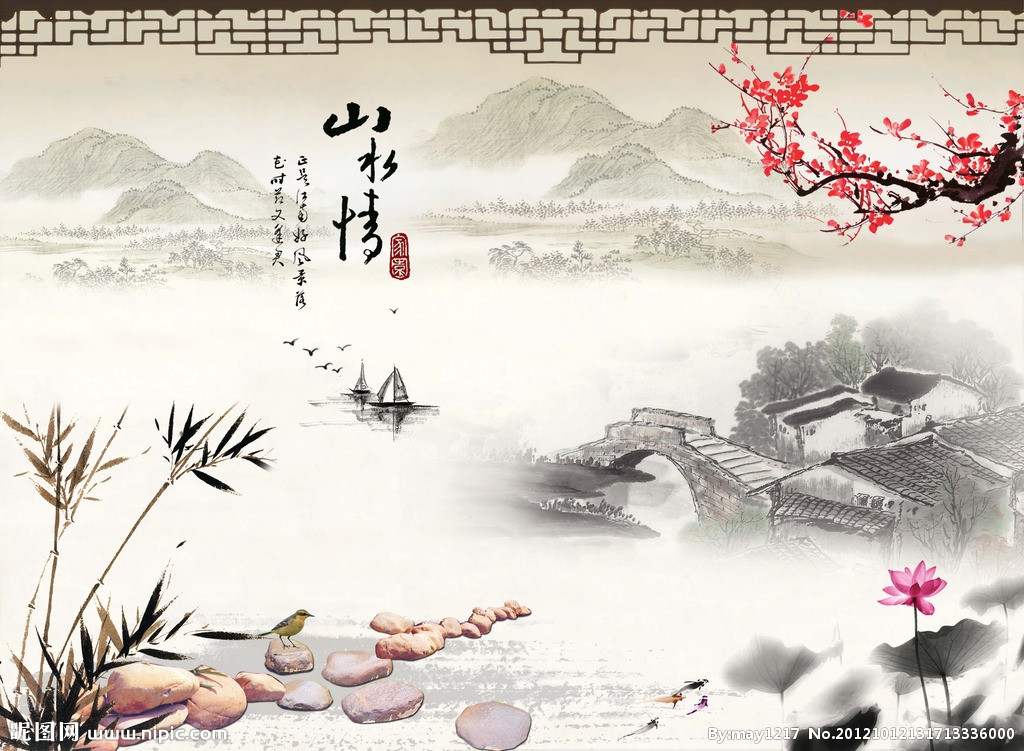 山水情
正是江南好风景落
花时节又逢君
昵图网 www.nipic.com
By:may1217 No.20121012131713336000